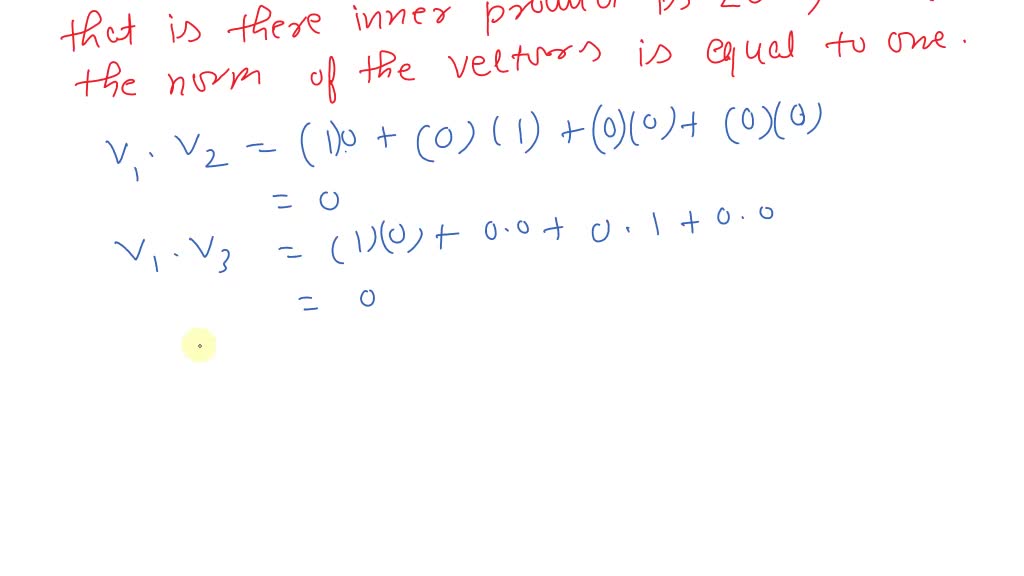 that is there inner product is
the norm of the vectors is equal to one.
V₁ . V₂ = (1).0 + (0) (1) + (0)(0) + (0)(0)
= 0
V₁ . V₃ = (1)(0) + 0.0 + 0 . 1 + 0.0
= 0